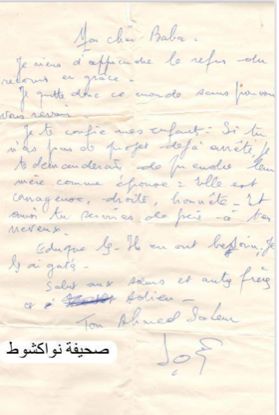 Mon cher Baba.
Je viens d'apprendre le refus du
recours en grâce.
Je quitte donc ce monde sans pouvoir
vous revoir
Je te confie mes enfants. Si tu
n'as pas de projet déjà arrêté je
te demanderais de prendre leur
mère comme épouse : Elle est
courageuse, droite, honnête. Et
ainsi tu serviras de père à tes
neveux.
Eduque les. Ils en ont besoin, je
les ai gatés.
Salut aux sœurs et autres frères
Adieu -
Ton Ahmed Salem
صحيفة نواكشوط